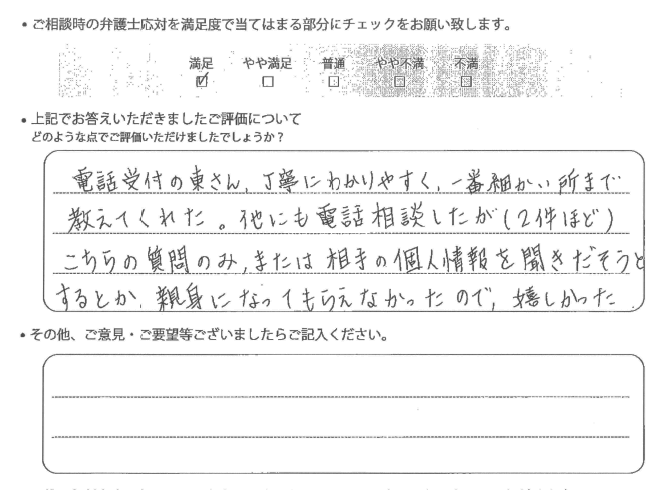 • ご相談時の弁護士応対を満足度で当てはまる部分にチェックをお願い致します。
満足 やや満足 普通 やや不満 不満
☑ □ □ □ □
• 上記でお答えいただきましたご評価について
どのような点でご評価いただけましたでしょうか？
電話受付の東さん、丁寧にわかりやすく、一番細かい所まで
教えてくれた。他にも電話相談したが(2件ほど)
こちらの質問のみ、または相手の個人情報を聞きだそうと
するとか、親身になってもらえなかったので、嬉しかった
• その他、ご意見・ご要望等ございましたらご記入ください。